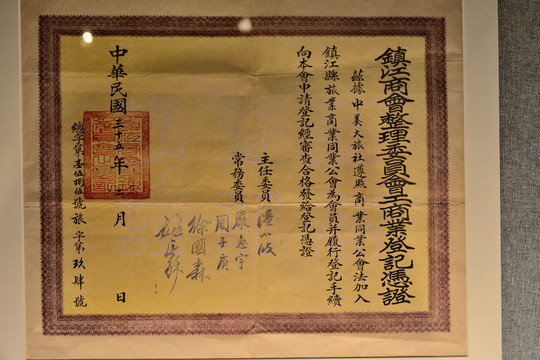 鎮江商會整理委員會工商業登記憑證
茲據 中美大旅社遵照商業同業公會法加入
鎮江縣旅業商業同業公會為會員並履行登記手續
向本會申請登記經審查合格發給登記憑證
主任委員
常務委員
嚴惠宇
周子庚
徐國森
中華民國三十五年 月 日
總字第壹伍捌伍號旅字第玖肆號